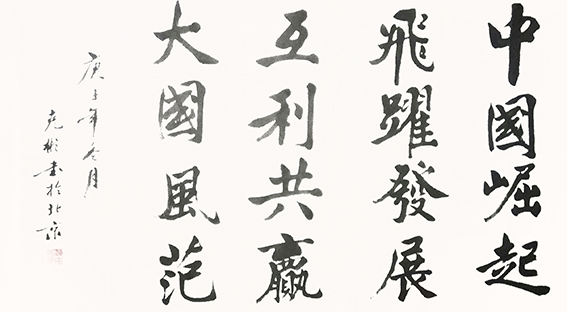 中國崛起
飛躍發展
互利共贏
大國風范
庚子年冬月
克彬書於北京